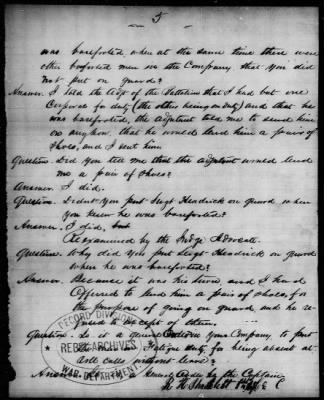 5
was barefooted when at the same time there were
other barefooted men in the Company that you did
not put on guard?
Answer. I told the Adjt of the Battalion that I had but one
Corporal for duty (the other being on duty) and that he
was barefooted, the adjutant told me to send him
on anyhow, that he would lend him a pair of
Shoes, and I sent him
Question. Did you tell me that the adjutant would lend
me a pair of Shoes?
Answer. I did.
Question. Didnt you put Sergt Headrick on guard when
you knew he was barefooted?
Answer. I did, but
Reexamined by the Judge Advocate.
Question. Why did you put Sergt Headrick on guard
when he was barefooted.
Answer. Because it was his turn and I had
offered to lend him a pair of shoes, for
the purpose of going on guard, and he re-
fused to accept of them.
Question. Is it a general order in your Company to put
men on fatigue duty, for being absent at
roll calls, without leave?
Answer. It is, a general order by the Captain
RECORD DIVISION
REBEL ARCHIVES
WAR DEPARTMENT